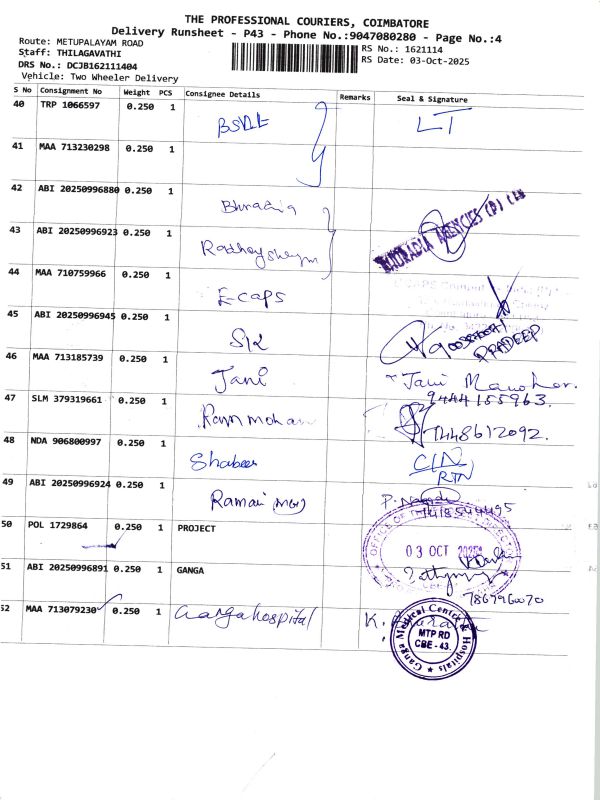 THE PROFESSIONAL COURIERS, COIMBATORE
Delivery Runsheet - P43 - Phone No.:9047080280 - Page No.:4
Route: METUPALAYAM ROAD
Staff: THILAGAVATHI
DRS No.: DCJB162111404
Vehicle: Two Wheeler Delivery
RS No.: 1621114
RS Date: 03-Oct-2025
S No Consignment No Weight PCS Consignee Details Remarks Seal & Signature
40 TRP 1066597 0.250 1 LT
41 MAA 713230298 0.250 1
42 ABI 20250996880 0.250 1
43 ABI 20250996923 0.250 1 AGENCIES (P)
44 MAA 710759966 0.250 1 E-caps
45 ABI 20250996945 0.250 1 PRADEEP
46 MAA 713185739 0.250 1 Jani Jani
9444155963.
47 SLM 379319661 0.250 1 Ram mohan 7448612092.
48 NDA 906800997 0.250 1 Shabeer
RTN
49 ABI 20250996924 0.250 1 Ramani
50 POL 1729864 0.250 1 PROJECT
OFFICE OF THE
03 OCT 2025
51 ABI 20250996891 0.250 1 GANGA
52 MAA 713079230 0.250 1 Ganga hospital K.
Ganga Medical Centre & Hospitals
MTP RD
CBE - 43.